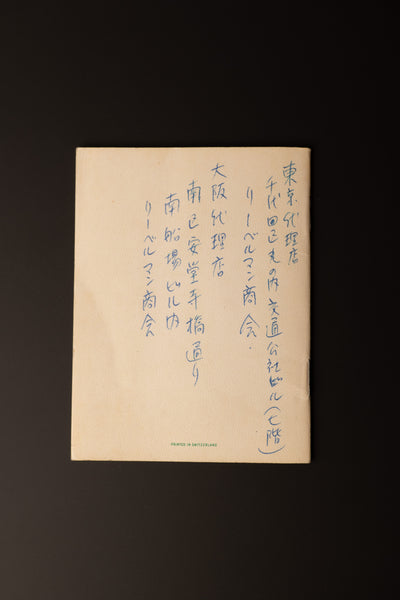 東京代理店
千代田区丸の内交通公社ビル(七階)
リーベルマン商会.
大阪代理店
南区安堂寺橋通り
南船場ビル内
リーベルマン商会
PRINTED IN SWITZERLAND